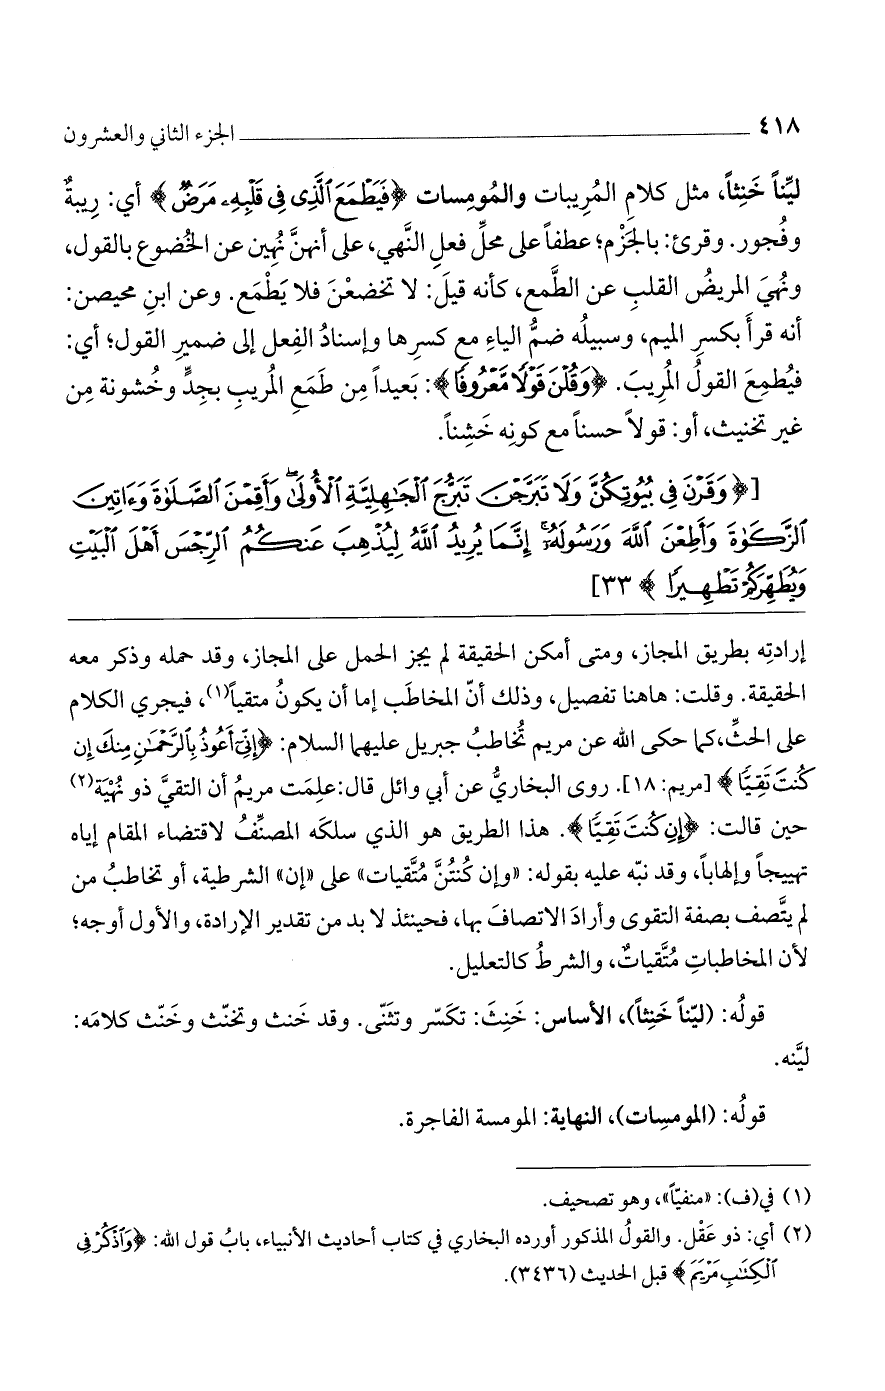 ٤١٨ ــــــــــــــــــــــــــــــــــــــــ الجزء الثاني والعشرون
ليِّناً خَنِثاً، مثل كلامِ المُرِيبات والمُومِسات ﴿فَيَطْمَعَ ٱلَّذِى فِى قَلْبِهِۦ مَرَضٌ﴾ أي: رِيبةٌ
وفُجور. وقرئ: بالجَزْم؛ عطفاً على محلِّ فعلِ النَّهي، على أنهنَّ نُهين عن الخُضوع بالقول،
ونُهيَ المريضُ القلبِ عن الطَّمع، كأنه قيلَ: لا تخضعْنَ فلا يَطْمَع. وعن ابنِ محيصن:
أنه قرأَ بكسرِ الميم، وسبيلُه ضمُّ الياءِ مع كسرِها وإسنادُ الفِعل إلى ضميرِ القول؛ أي:
فيُطمِعَ القولُ المُرِيبَ. ﴿وَقُلْنَ قَوْلًا مَّعْرُوفًا﴾: بَعيداً مِن طَمَعِ المُريبِ بجِدٍّ وخُشونة مِن
غير تخنيث، أو: قولاً حسناً مع كونِه خَشِناً.
[﴿وَقَرْنَ فِى بُيُوتِكُنَّ وَلَا تَبَرَّجْنَ تَبَرُّجَ ٱلْجَٰهِلِيَّةِ ٱلْأُولَىٰ ۖ وَأَقِمْنَ ٱلصَّلَوٰةَ وَءَاتِينَ
ٱلزَّكَوٰةَ وَأَطِعْنَ ٱللَّهَ وَرَسُولَهُۥٓ ۚ إِنَّمَا يُرِيدُ ٱللَّهُ لِيُذْهِبَ عَنكُمُ ٱلرِّجْسَ أَهْلَ ٱلْبَيْتِ
وَيُطَهِّرَكُمْ تَطْهِيرًا﴾ ٣٣]
إرادتِه بطريق المجاز، ومتى أمكن الحقيقة لم يجز الحمل على المجاز، وقد حمله وذكر معه
الحقيقة. وقلت: هاهنا تفصيل، وذلك أنّ المخاطَب إما أن يكونُ متقياً(١)، فيجري الكلام
على الحثِّ،كما حكى الله عن مريم تُخاطبُ جبريل عليهما السلام: ﴿إِنِّىٓ أَعُوذُ بِٱلرَّحْمَٰنِ مِنكَ إِن
كُنتَ تَقِيًّا﴾ [مريم: ١٨]. روى البخاريُّ عن أبي وائل قال:علِمَت مريمُ أن التقيَّ ذو نُهْيَة(٢)
حين قالت: ﴿إِن كُنتَ تَقِيًّا﴾. هذا الطريق هو الذي سلكَه المصنِّفُ لاقتضاء المقام إياه
تهييجاً وإلهاباً، وقد نبّه عليه بقوله: «وإن كُنتُنَّ مُتَّقيات» على «إن» الشرطية، أو تخاطبُ من
لم يتَّصف بصفة التقوى وأرادَ الاتصافَ بها، فحينئذ لا بد من تقدير الإرادة، والأول أوجه؛
لأن المخاطباتِ مُتَّقياتٌ، والشرطُ كالتعليل.
قولُه: (ليّناً خَنِثاً)، الأساس: خَنِثَ: تكسّر وتثَنّى. وقد خَنث وتخنّث وخَنّث كلامَه:
ليَّنه.
قولُه: (المومِسات)، النهاية: المومسة الفاجرة.
(١) في(ف): «منفيّاً»، وهو تصحيف.
(٢) أي: ذو عَقْل. والقولُ المذكور أورده البخاري في كتاب أحاديث الأنبياء، بابُ قول الله: ﴿وَٱذْكُرْ فِى
ٱلْكِتَٰبِ مَرْيَمَ﴾ قبل الحديث (٣٤٣٦).